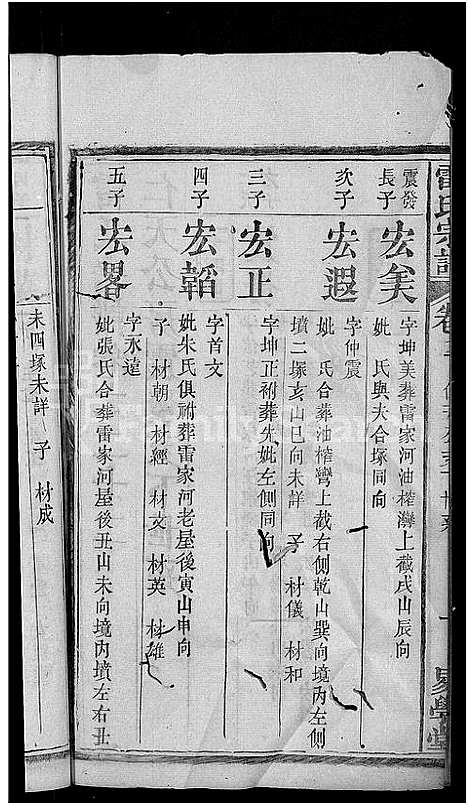 雷氏宗譜
易學堂
震發
長子
宏美
字坤美葬雷家河油榨灣上截戌山辰向
妣 氏與夫合塚同向
次子
宏遐
字仲震
妣 氏合葬油榨灣上截右側乾山巽向境內左側
墳二塚亥山巳向未詳 子 材儀 材和
三子
宏正
字坤正祔葬先妣左側同向
四子
宏韜
字首文
妣朱氏俱祔葬雷家河老屋後寅山申向
子 材朝 材經 材文 材英 材雄
五子
宏畧
字永達
妣張氏合葬雷家河屋後丑山未向境內墳左右丑
未四塚未詳 子 材成